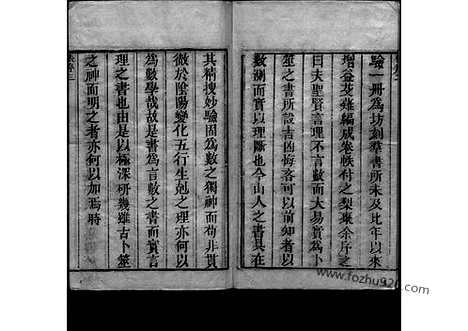 驗一冊為坊刻羣書所未及比年以來
增益芟雜編成卷帙付之梨棗余斥之
曰夫聖賢言理不言數而大易實為卜
筮之書所設吉凶悔吝可以前知者以
數測而實以理斷也今山人之書具在
其精搜妙驗固為數之獨神而苟非貫
徹於陰陽變化五行生剋之理亦何以
為數學哉故是書為言數之書而實言
理之書也由是以極深研幾雖古卜筮
之神而明之者亦何以加焉時
www.fozhu920.com